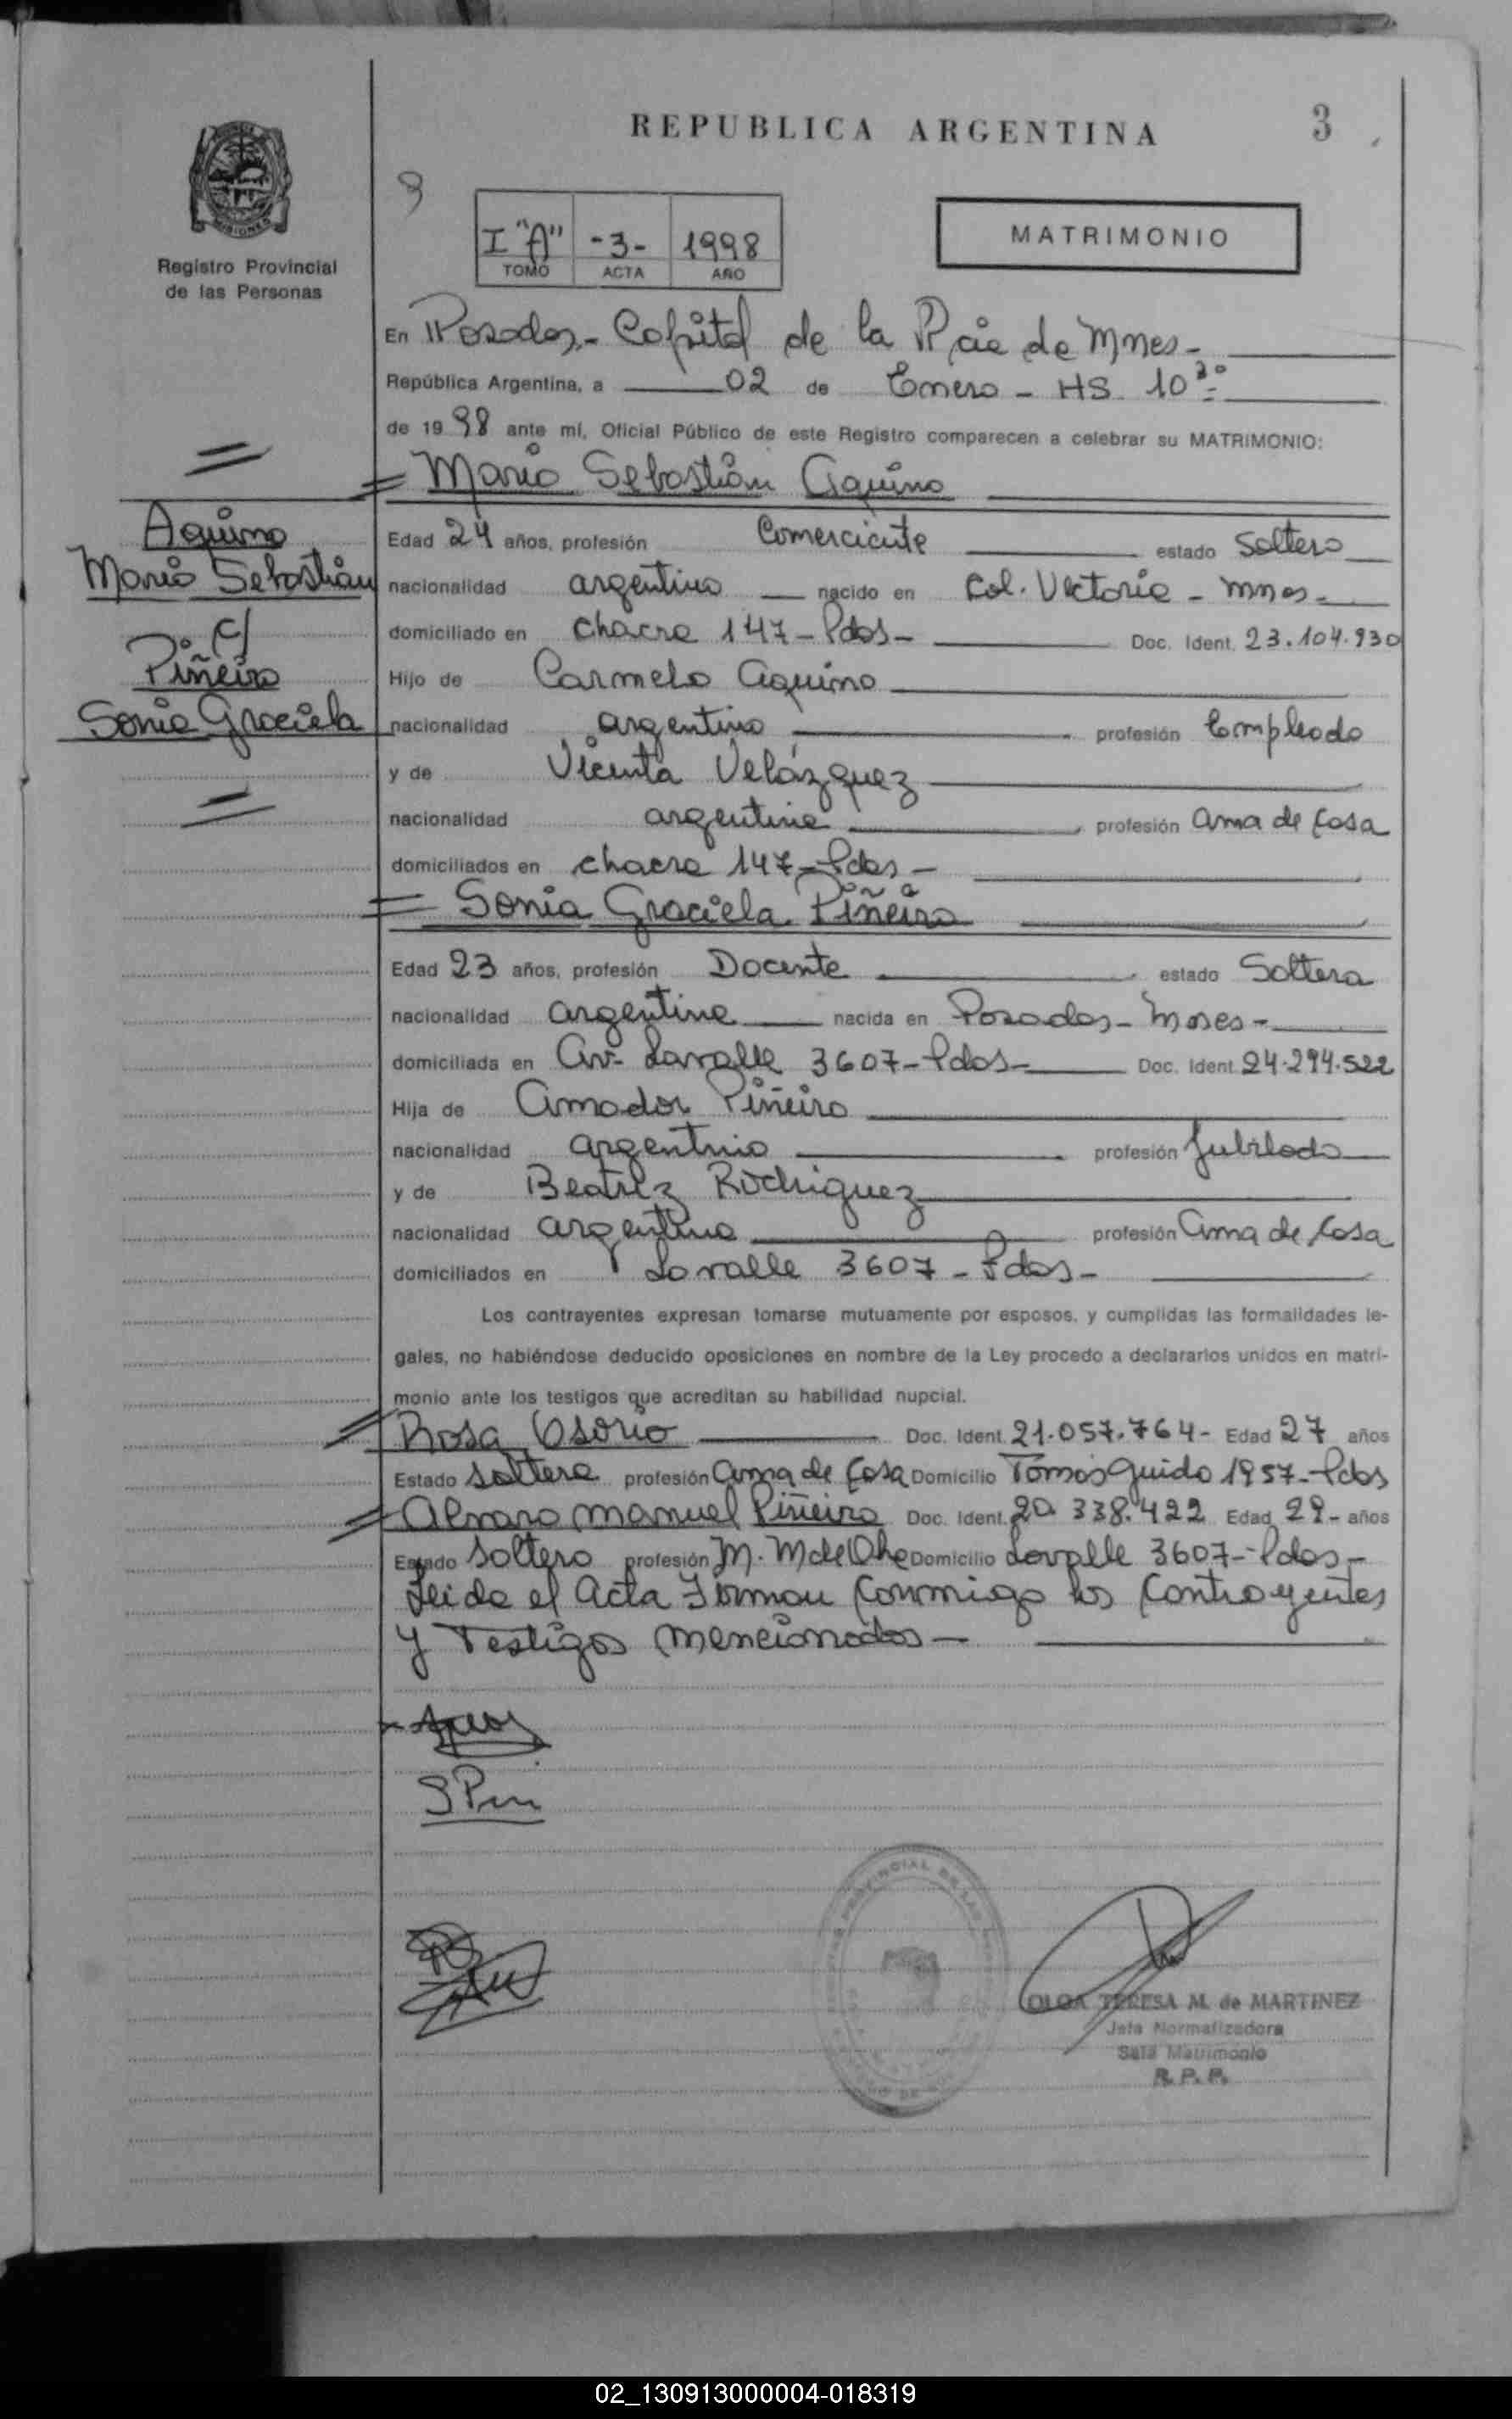 REPUBLICA ARGENTINA
3
MISIONES
Registro Provincial
de las Personas
I "A" -3- 1998
TOMO ACTA AÑO
MATRIMONIO
En Posadas.- Capital de la Pcia de Mnes-
República Argentina, a 02 de Enero - HS. 10 30
de 1998 ante mí, Oficial Público de este Registro comparecen a celebrar su MATRIMONIO:
Mario Sebastián Aquino
Aquino
Mario Sebastián
c/
Piñeiro
Sonia Graciela
Edad 24 años, profesión Comerciante estado Soltero
nacionalidad argentino nacido en Col. Victoria - Mnes-
domiciliado en chacra 147 - Pdas - Doc. Ident. 23.104.930
Hijo de Carmelo Aquino
nacionalidad argentino profesión Empleado
y de Vicenta Velázquez
nacionalidad argentina profesión ama de casa
domiciliados en chacra 147 - Pdas -
Sonia Graciela Piñeiro
Edad 23 años, profesión Docente estado Soltera
nacionalidad argentina nacida en Posadas - Mnes -
domiciliada en Av. Lavalle 3607 - Pdas - Doc. Ident. 24.294.522
Hija de Amador Piñeiro
nacionalidad argentino profesión Jubilado
y de Beatriz Rodriguez
nacionalidad argentina profesión ama de casa
domiciliados en Lavalle 3607 - Pdas -
Los contrayentes expresan tomarse mutuamente por esposos, y cumplidas las formalidades le-
gales, no habiéndose deducido oposiciones en nombre de la Ley procedo a declararlos unidos en matri-
monio ante los testigos que acreditan su habilidad nupcial.
Rosa Osorio Doc. Ident. 21.057.764 - Edad 27 años
Estado soltera profesión ama de casa Domicilio Tomás Guido 1957 - Pdas
Alvaro Manuel Piñeiro Doc. Ident. 20.338.422 Edad 29 - años
Estado soltero profesión Domicilio Lavalle 3607 - Pdas -
Leida el Acta Firman conmigo los contrayentes
y Testigos mencionados -
OLGA TERESA M. de MARTINEZ
Jefa Normalizadora
Sala Matrimonio
R. P. P.
02_130913000004-018319